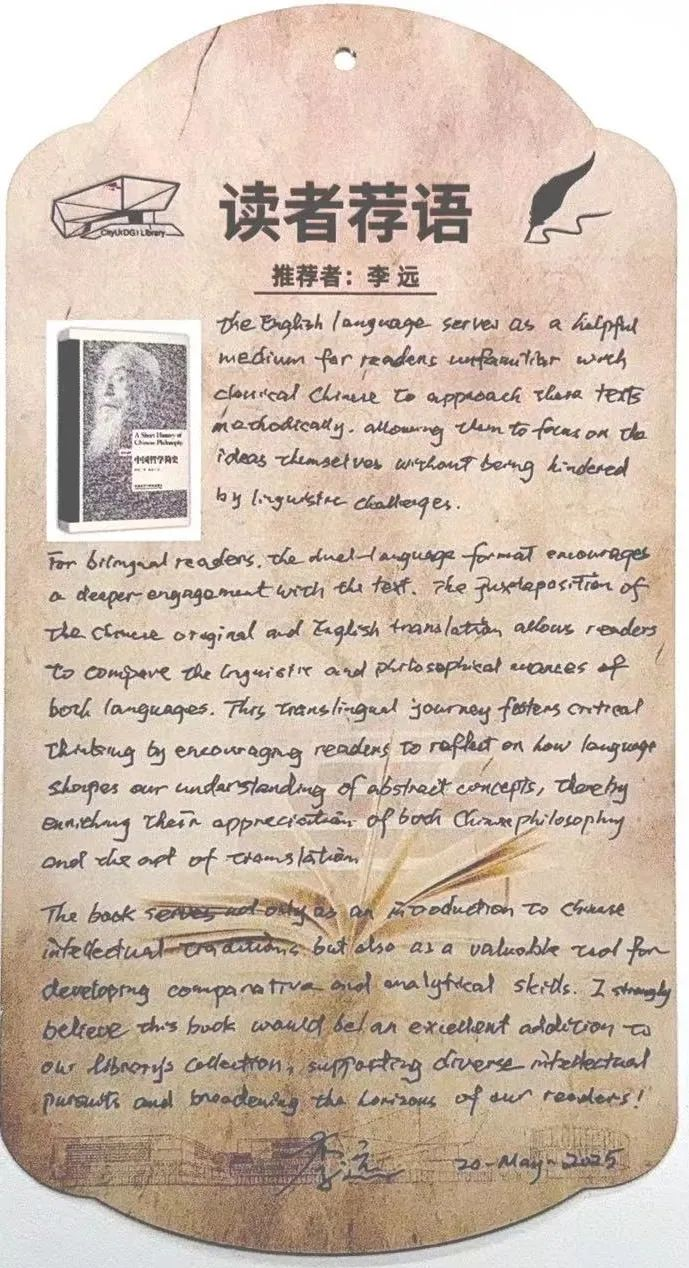 CityU(DG) Library
读者荐语
推荐者：李远
The English language serves as a helpful
medium for readers unfamiliar with
classical Chinese to approach these texts
methodically, allowing them to focus on the
ideas themselves without being hindered
by linguistic challenges.
A Short History of
Chinese Philosophy
中国哲学简史
For bilingual readers, the dual-language format encourages
a deeper engagement with the text. The juxtaposition of
the Chinese original and English translation allows readers
to compare the linguistic and philosophical nuances of
both languages. This translingual journey fosters critical
thinking by encouraging readers to reflect on how language
shapes our understanding of abstract concepts, thereby
enriching their appreciation of both Chinese philosophy
and the art of translation.
The book serves not only as an introduction to Chinese
intellectual traditions but also as a valuable tool for
developing comparative and analytical skills. I strongly
believe this book would be an excellent addition to
our library's collection, supporting diverse intellectual
pursuits and broadening the horizons of our readers!
李远 20-May-2025